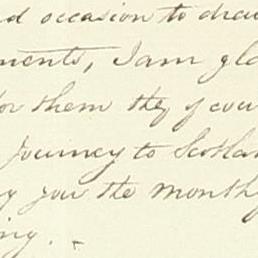 d occasion to draw
ments, I am gla
for them they of cour
Journey to Scotlan
y you the month
ing.